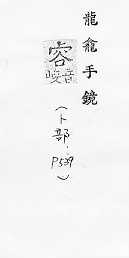 龍龕手鏡
音峻
(卜部. P539)